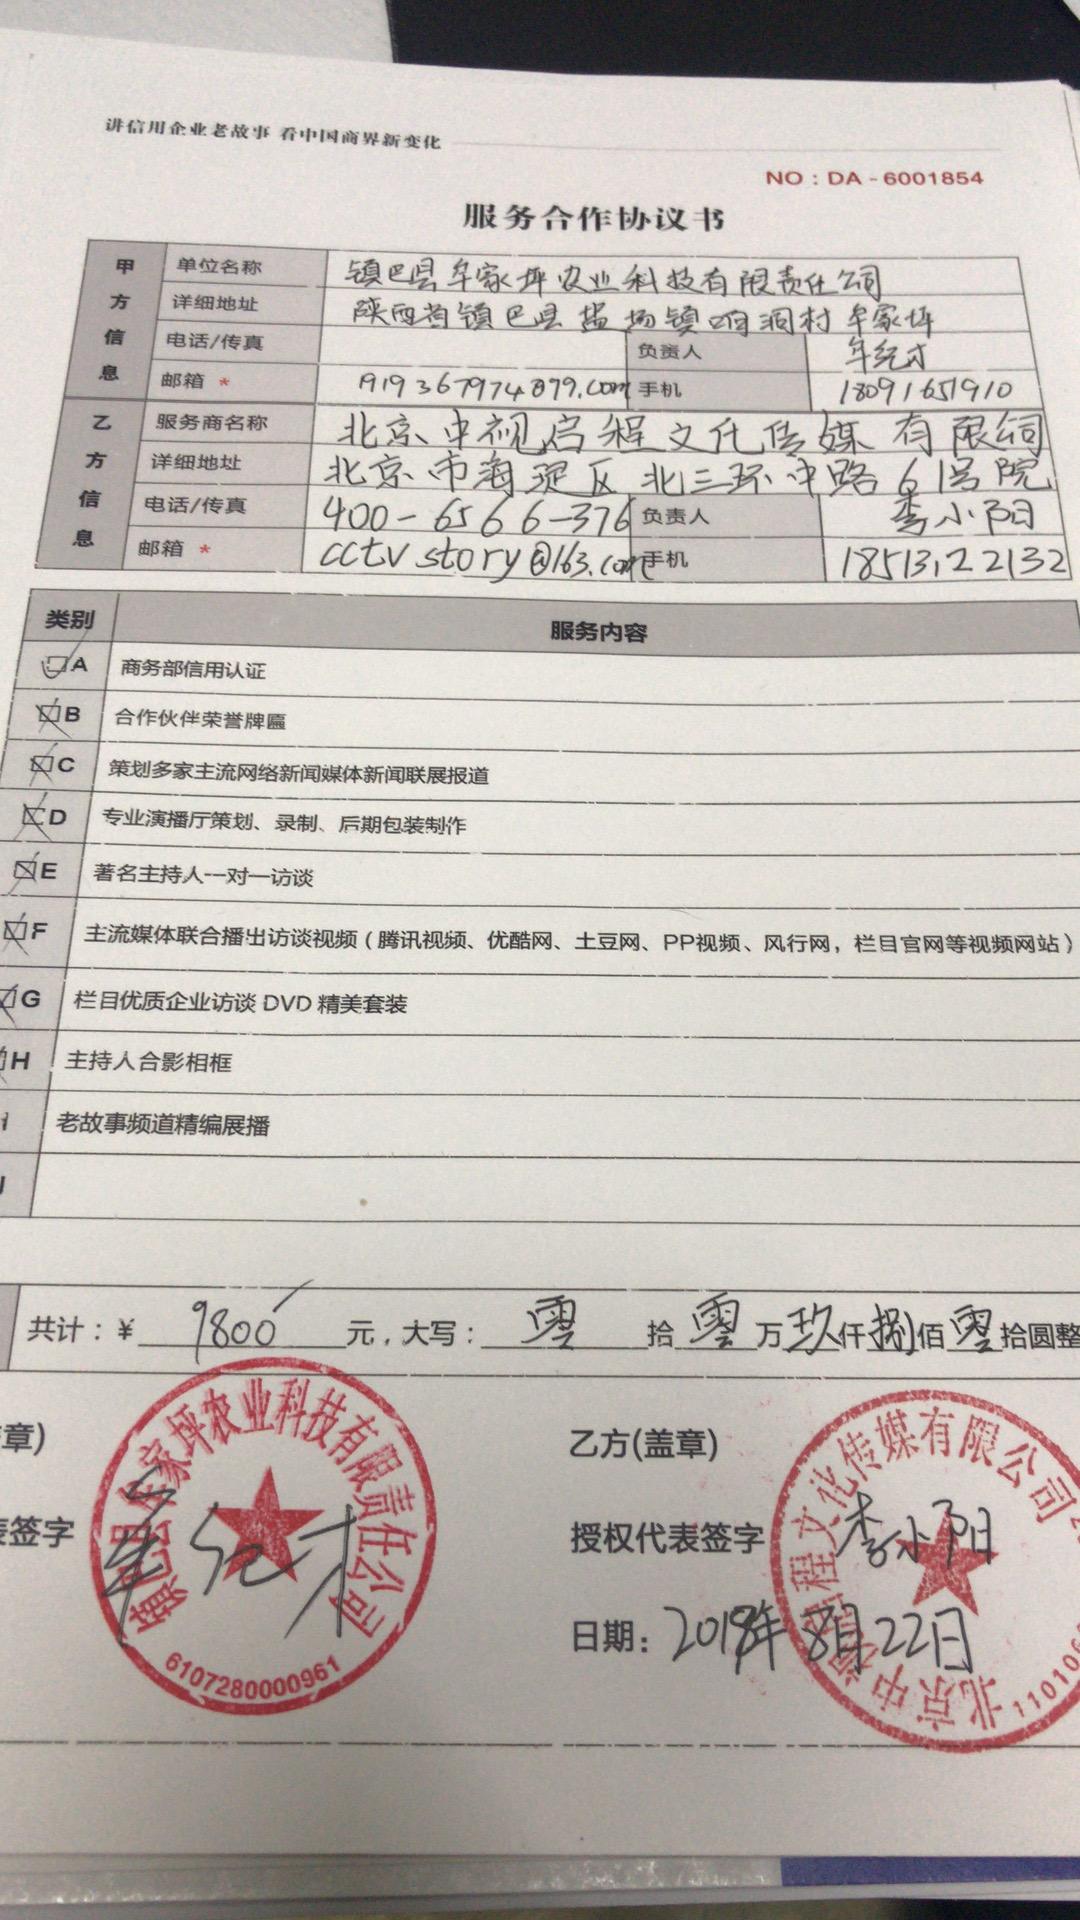 讲信用企业老故事 看中国商界新变化
NO：DA-6001854
服务合作协议书
甲方信息
单位名称 镇巴县牟家坪农业科技有限责任公司
详细地址 陕西省镇巴县盐场镇响洞村牟家坪
电话/传真 负责人 牟纪才
邮箱 * 919367974@79.com 手机 18091651910
乙方信息
服务商名称 北京中视启程文化传媒有限公司
详细地址 北京市海淀区北三环中路61号院
电话/传真 400-6566-376 负责人 李小阳
邮箱 * cctvstory@163.com 手机 18513122132
类别 服务内容
A 商务部信用认证
B 合作伙伴荣誉牌匾
C 策划多家主流网络新闻媒体新闻联展报道
D 专业演播厅策划、录制、后期包装制作
E 著名主持人一对一访谈
F 主流媒体联合播出访谈视频（腾讯视频、优酷网、土豆网、PP视频、风行网，栏目官网等视频网站）
G 栏目优质企业访谈 DVD 精美套装
H 主持人合影相框
老故事频道精编展播
共计：¥ 9800 元，大写：零 拾 零 万 玖 仟 捌 佰 零 拾圆整
章) 乙方(盖章)
签字 牟纪才 授权代表签字 李小阳
日期：2018年8月22日
镇巴县牟家坪农业科技有限责任公司
6107280000961
北京中视启程文化传媒有限公司
110106